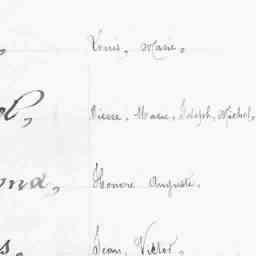 Louis, Marie,
Pierre, Marie, Joseph, Michel,
Honoré Auguste,
Jean, Victor,